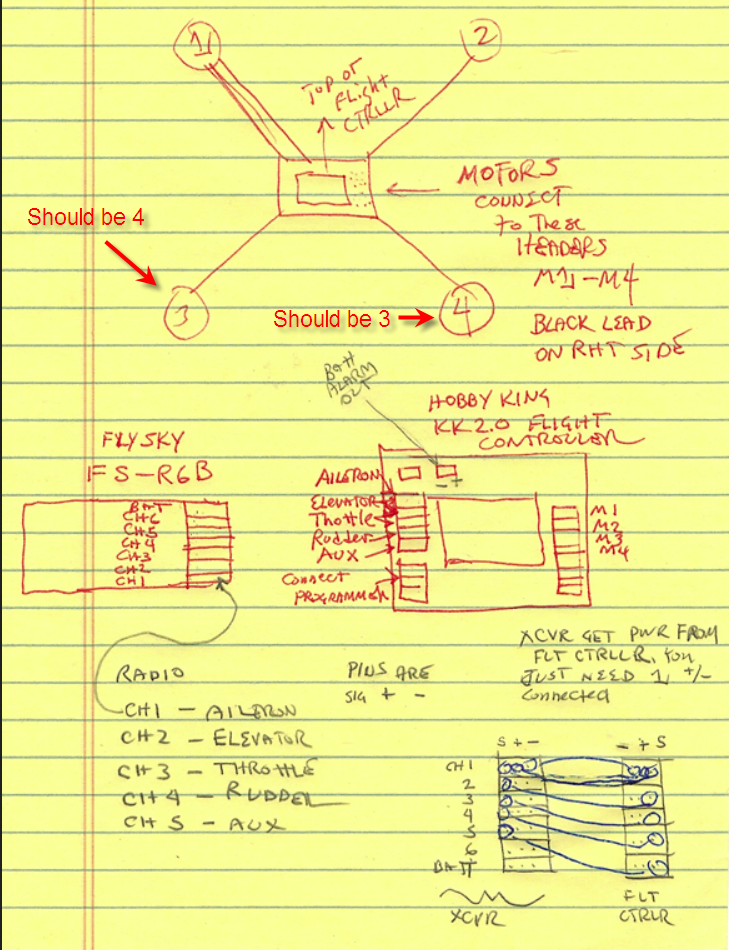 1
2
TOP OF
FLight
CTRLLR
MOTORS
CONNECT
to These
HEADERS
M1-M4
BLACK LEAD
ON RHT SIDE
Should be 4
3
Should be 3
4
BATT
ALARM
OUT
HOBBY KING
KK2.0 FLIGHT
CONTROLLER
FLYSKY
FS-R6B
BAT
CH6
CH5
CH4
CH3
CH2
CH1
AILERON
- +
ELEVATOR
Thottle
Rudder
AUX
Connect
PROGRAMMER
M1
M2
M3
M4
XCVR GET PWR FROM
FLT CTRLLR, You
JUST NEED 1 +/-
Connected
RADIO
CH1 - AILERON
CH2 - ELEVATOR
CH3 - THROTTLE
CH4 - RUDDER
CH5 - AUX
PINS ARE
SIG + -
S + -
- + S
CH1
2
3
4
5
6
BATT
XCVR
FLT
CTRLR